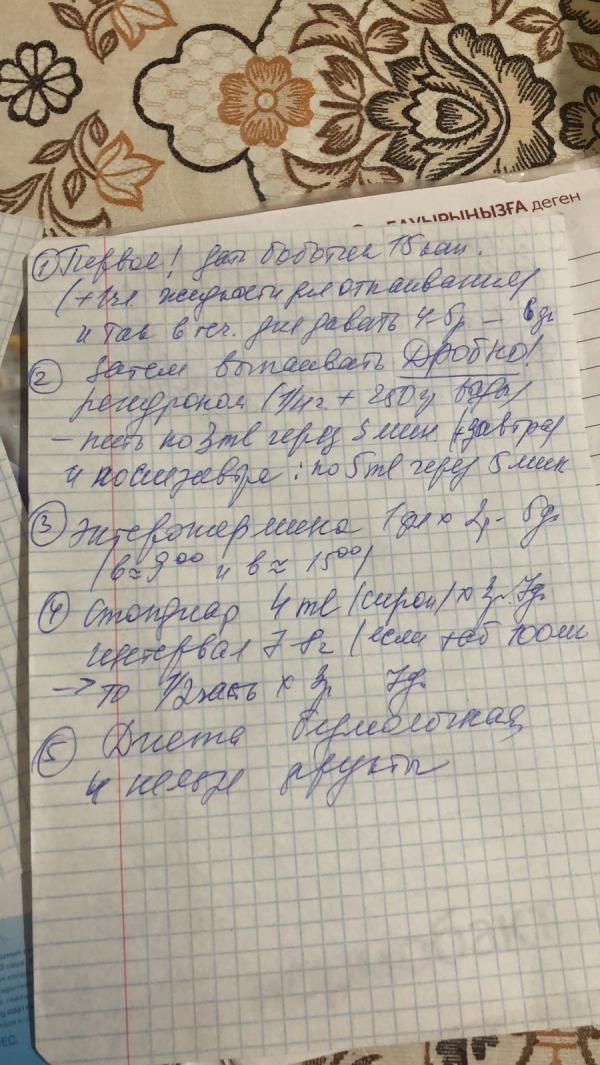 БАУЫРЫҢЫЗҒА деген
① Первое! дать боботик 15 кап.
(+ 1чл. жидкости для отпаивания)
и так в теч. дня давать 4-5р –
② Затем выпаивать Дробно!
регидроном ( + 250 воды)
– пить по 3ml через 5 мин. (+завтра)
и послезавтра: по 5ml через 5 мин
③ Энтерожермина 1фл x 2р – 5д.
(в ≈ 9⁰⁰ и в ≈ 15⁰⁰)
④ Стопдиар 4 ml (сироп) x 3р. 7д.
интервал 7-8ч (если таб 100мг
→ то 1/2 часть x 3р 7д.
⑤ Диета безмолочная
и нельзя фрукты